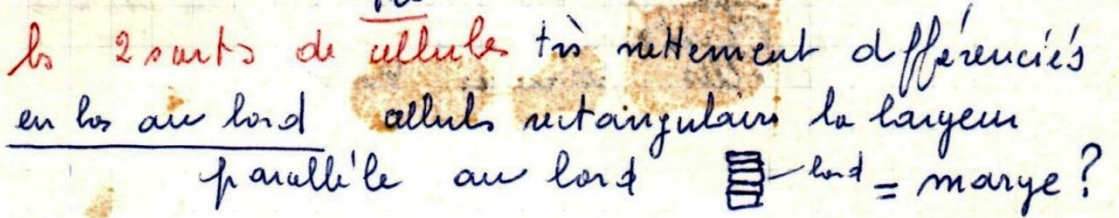 les 2 sorts de cellules très nettement différenciés
en bas au bord cellules rectangulaires la largeur
parallèle au bord bord = marge ?